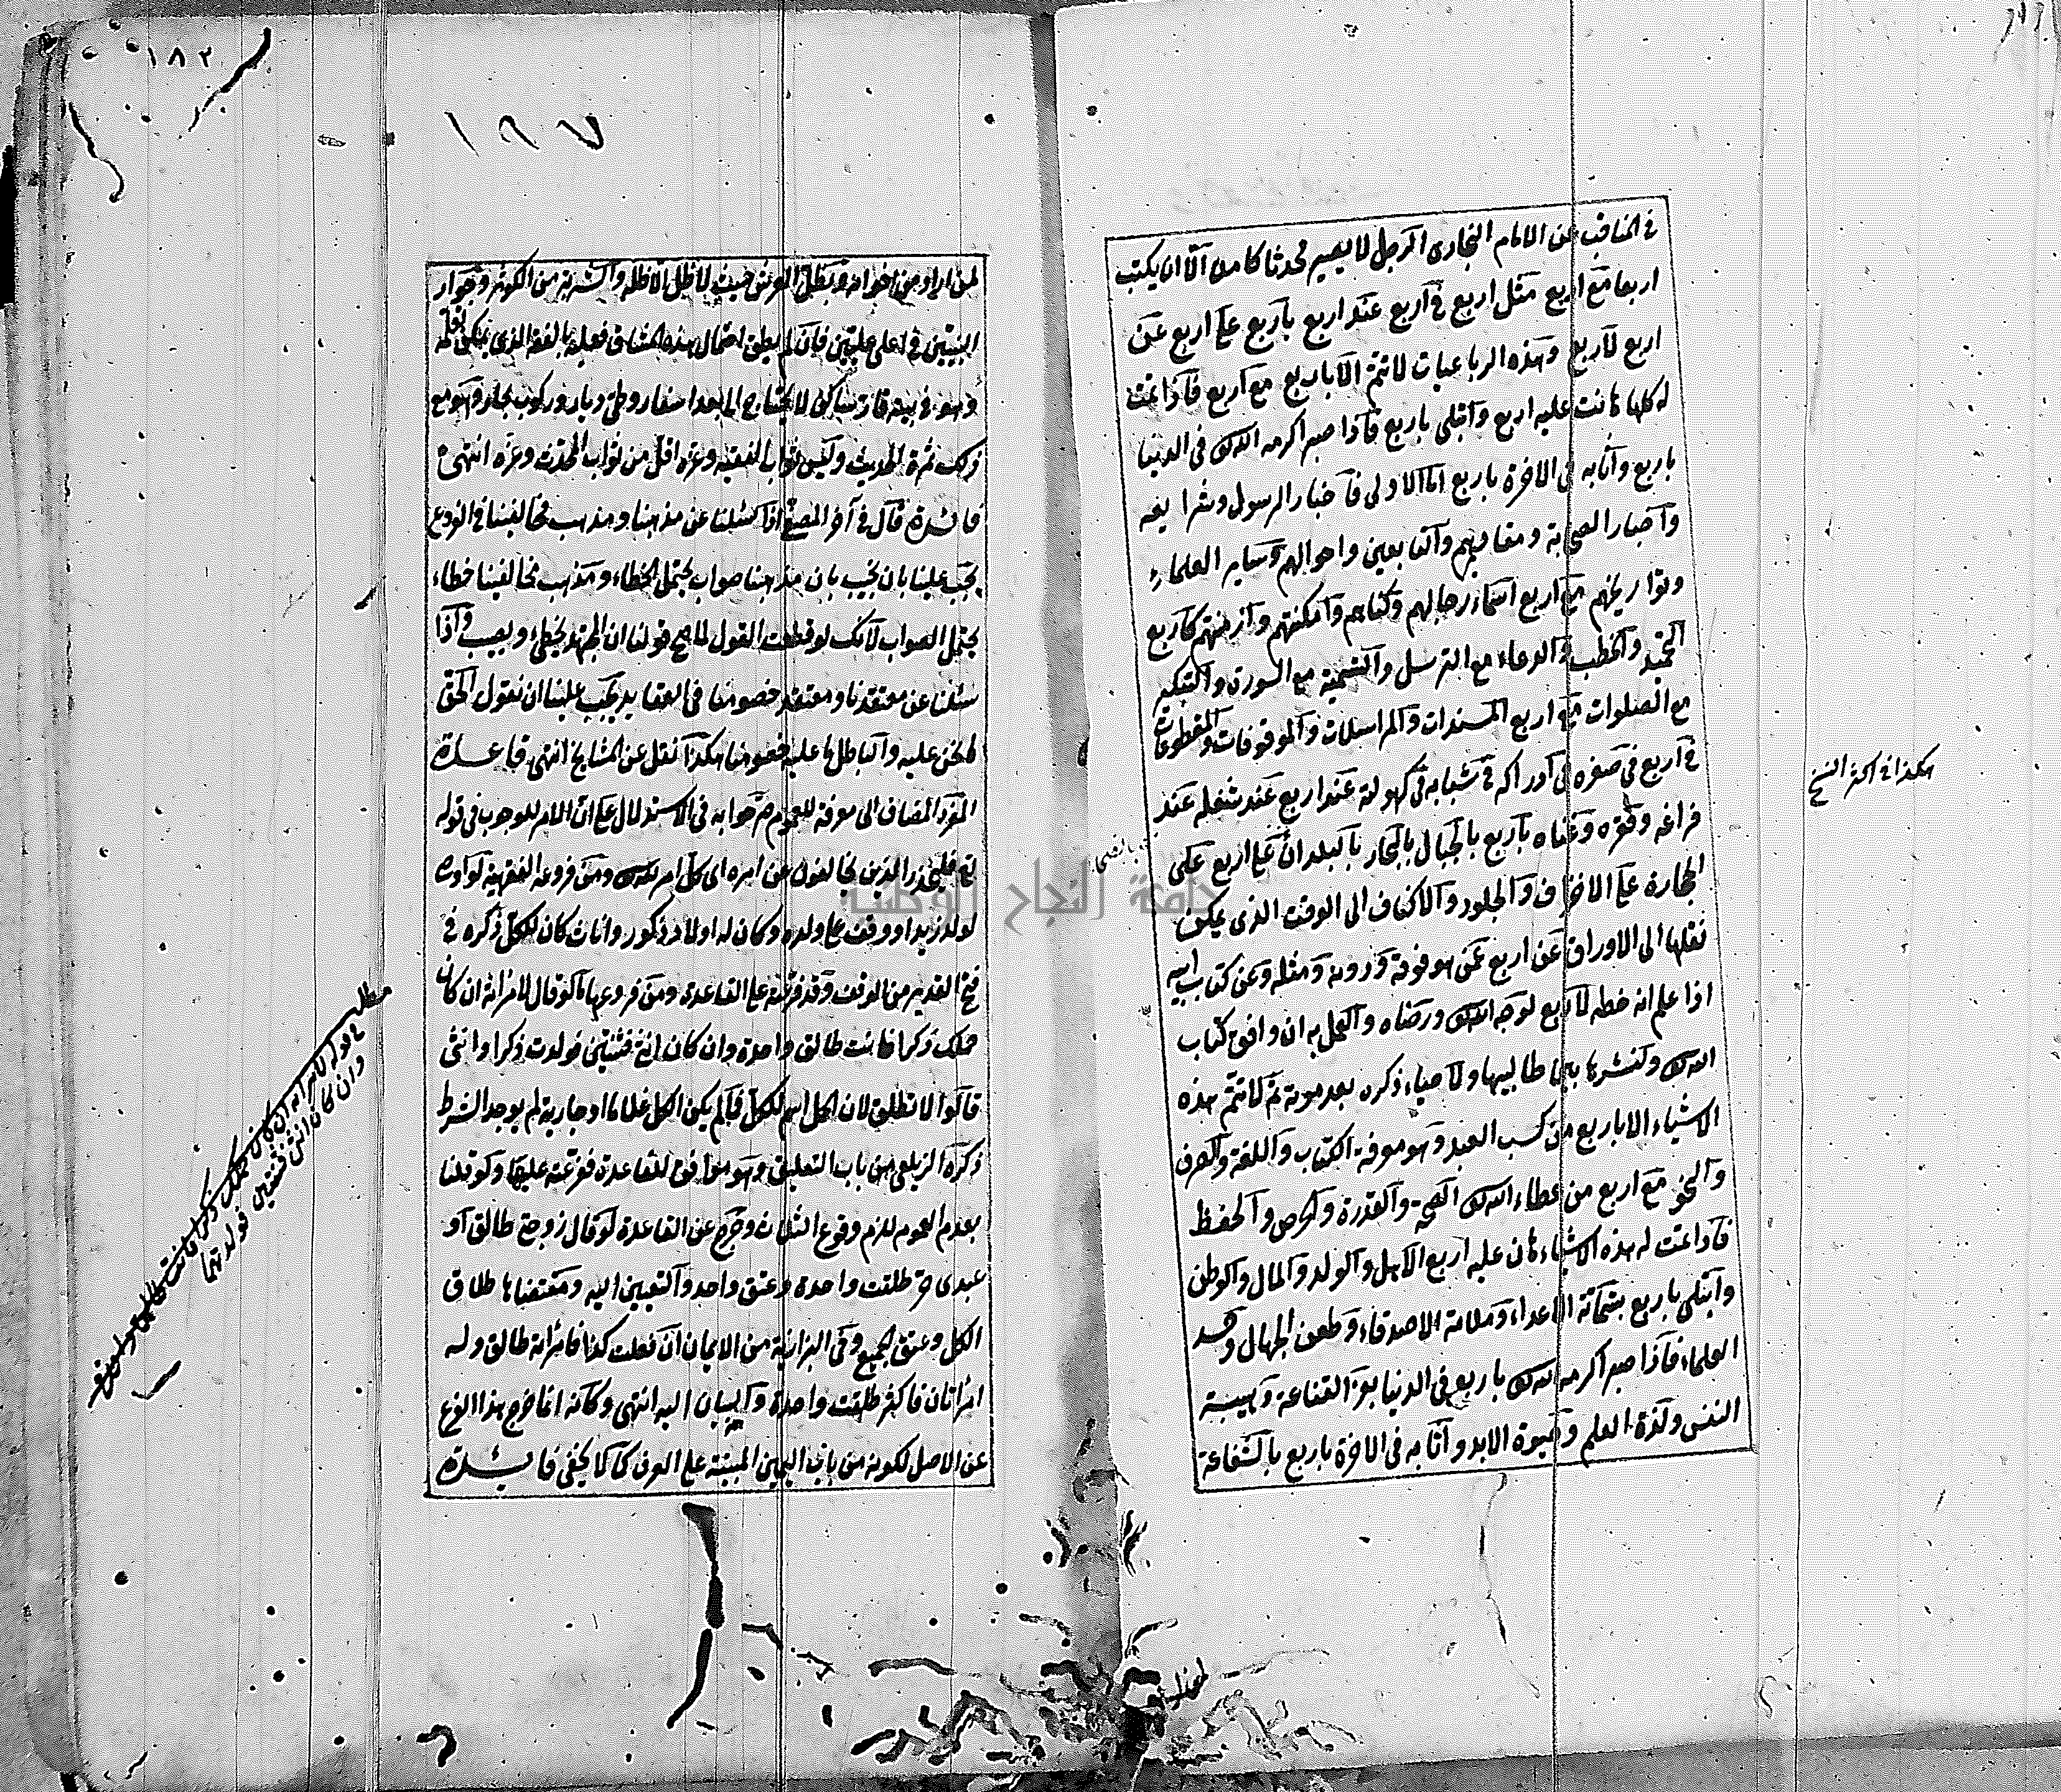 في المناقب عن الامام البخاري الرجل لا يصير محدثا كاملا الا ان يكتب
اربعا مع اربع مثل اربع في اربع عند اربع باربع على اربع عن
اربع لاربع وهذه الرباعيات لا تتم الا باربع مع اربع فاذا تمت
له كلها هانت عليه اربع وابتلى باربع فاذا صبر اكرمه الله تعالى في الدنيا
باربع واثابه في الاخرة باربع اما الاولى فاخبار الرسول وشرايعه
واخبار الصحابة ومقاديرهم والتابعين واحوالهم وساير العلماء
وتواريخهم مع اربع اسماء رجالهم وكناهم وامكنتهم وازمنتهم كاربع
التحميد والخطب والدعاء مع الترسل والتسمية مع السورة والتكبير
مع الصلوات مع اربع المسندات والمراسلات والموقوفات والمقطوعات
في اربع في صغره في ادراكه في شبابه في كهولته عند اربع عند شغله عند
فراغه وفقره وغناه باربع بالجبال بالبحار بالبلدان على اربع على
الحجارة على الاخزاف والجلود والاكتاف الى الوقت الذي يمكن
نقلها الى الاوراق عن اربع عمن هو فوقه ودونه ومثله وعن كتاب ابيه
اذا علم انه خطه لاربع لوجه الله تعالى ورضاه والعمل به ان وافق كتاب
الله تعالى ونشرها بين طالبيها ولاحياء ذكره بعد موته ثم لا تتم هذه
الاشياء الا باربع من كسب العبد وهو معرفة الكتاب واللغة والصرف
والنحو مع اربع من عطاء الله تعالى الصحة والقدرة والحرص والحفظ
فاذا تمت له هذه الاشياء هان عليه اربع الاهل والولد والمال والوطن
وابتلى باربع بشماتة الاعداء وملامة الاصدقاء وطعن الجهال وحسد
العلماء فاذا صبر اكرمه الله تعالى باربع في الدنيا بعز القناعة وهيبة
النفس ولذة العلم وحيوة الابد واثابه في الاخرة باربع بالشفاعة
هكذا في اكثر النسخ
١٨٢
١٩٧
لمن اراد من اخوانه وبظل العرش حيث لا ظل الا ظله والشربة من الكوثر وجوار
النبيين في اعلى عليين فان لم يطق احتمال هذه المشاق فعليه بالفقه الذي يمكن تعلمه
وهو في بيته قار ساكن لا يحتاج الى بعد اسفار وطي ديار وركوب بحار وهو مع
ذلك ثمرة الحديث وليس ثواب الفقيه وعزه اقل من ثواب المحدث وعزه انتهى
فائدة قال في آخر المصفى اذا سئلنا عن مذهبنا ومذهب مخالفينا في الفروع
يجب علينا بان نجيب بان مذهبنا صواب يحتمل الخطاء ومذهب مخالفينا خطاء
يحتمل الصواب لانك لو قطعت القول لما صح قولنا ان المجتهد يخطي ويصيب واذا
سئلنا عن معتقدنا ومعتقد خصومنا في العقايد يجب علينا ان نقول الحق
ما نحن عليه والباطل ما عليه خصومنا هكذا نقل عن المشايخ انتهى قاعدة
المفرد المضاف الى معرفة للعموم صرحوا به في الاستدلال على ان الامر للوجوب في قوله
تعالى فليحذر الذين يخالفون عن امره اي كل امر الله تعالى ومن فروعه الفقهية لو اوصى
لولد زيد او وقف على ولده وكان له اولاد ذكور واناث كان للكل ذكره في
فتح القدير من الوقف وقد فرعته على القاعدة ومن فروعها لو قال لامرأته ان كان
حملك ذكرا فانت طالق واحدة وان كان انثى فثنتين فولدت ذكرا وانثى
قالوا لا تطلق لان الحمل اسم للكل فما لم يكن الكل غلاما او جارية لم يوجد الشرط
ذكره الزيلعي من باب التعليق وهو موافق للقاعدة ففرعته عليها ولو قلنا
بعدم العموم للزم وقوع الثلاث وخرج عن القاعدة لو قال زوجتي طالق او
عبدي حر طلقت واحدة وعتق واحد والتعيين اليه ومقتضاها طلاق
الكل وعتق الجميع وفي البزازية من الايمان ان فعلت كذا فامرأته طالق وله
امرأتان فاكثر طلقت واحدة والبيان اليه انتهى وكأنه انما خرج هذا الفرع
عن الاصل لكونه من باب اليمين المبنية على العرف كما لا يخفى فائدة
مطلب
في قوله لامرأته ان كان حملك ذكرا فانت طالق واحدة
وان كان انثى فثنتين فولدتهما